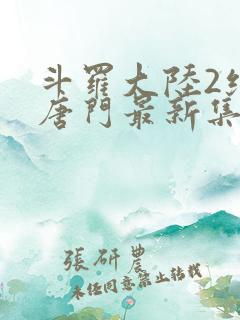 斗羅大陸2絕
唐門最新集
張研農
未經同意禁止轉載